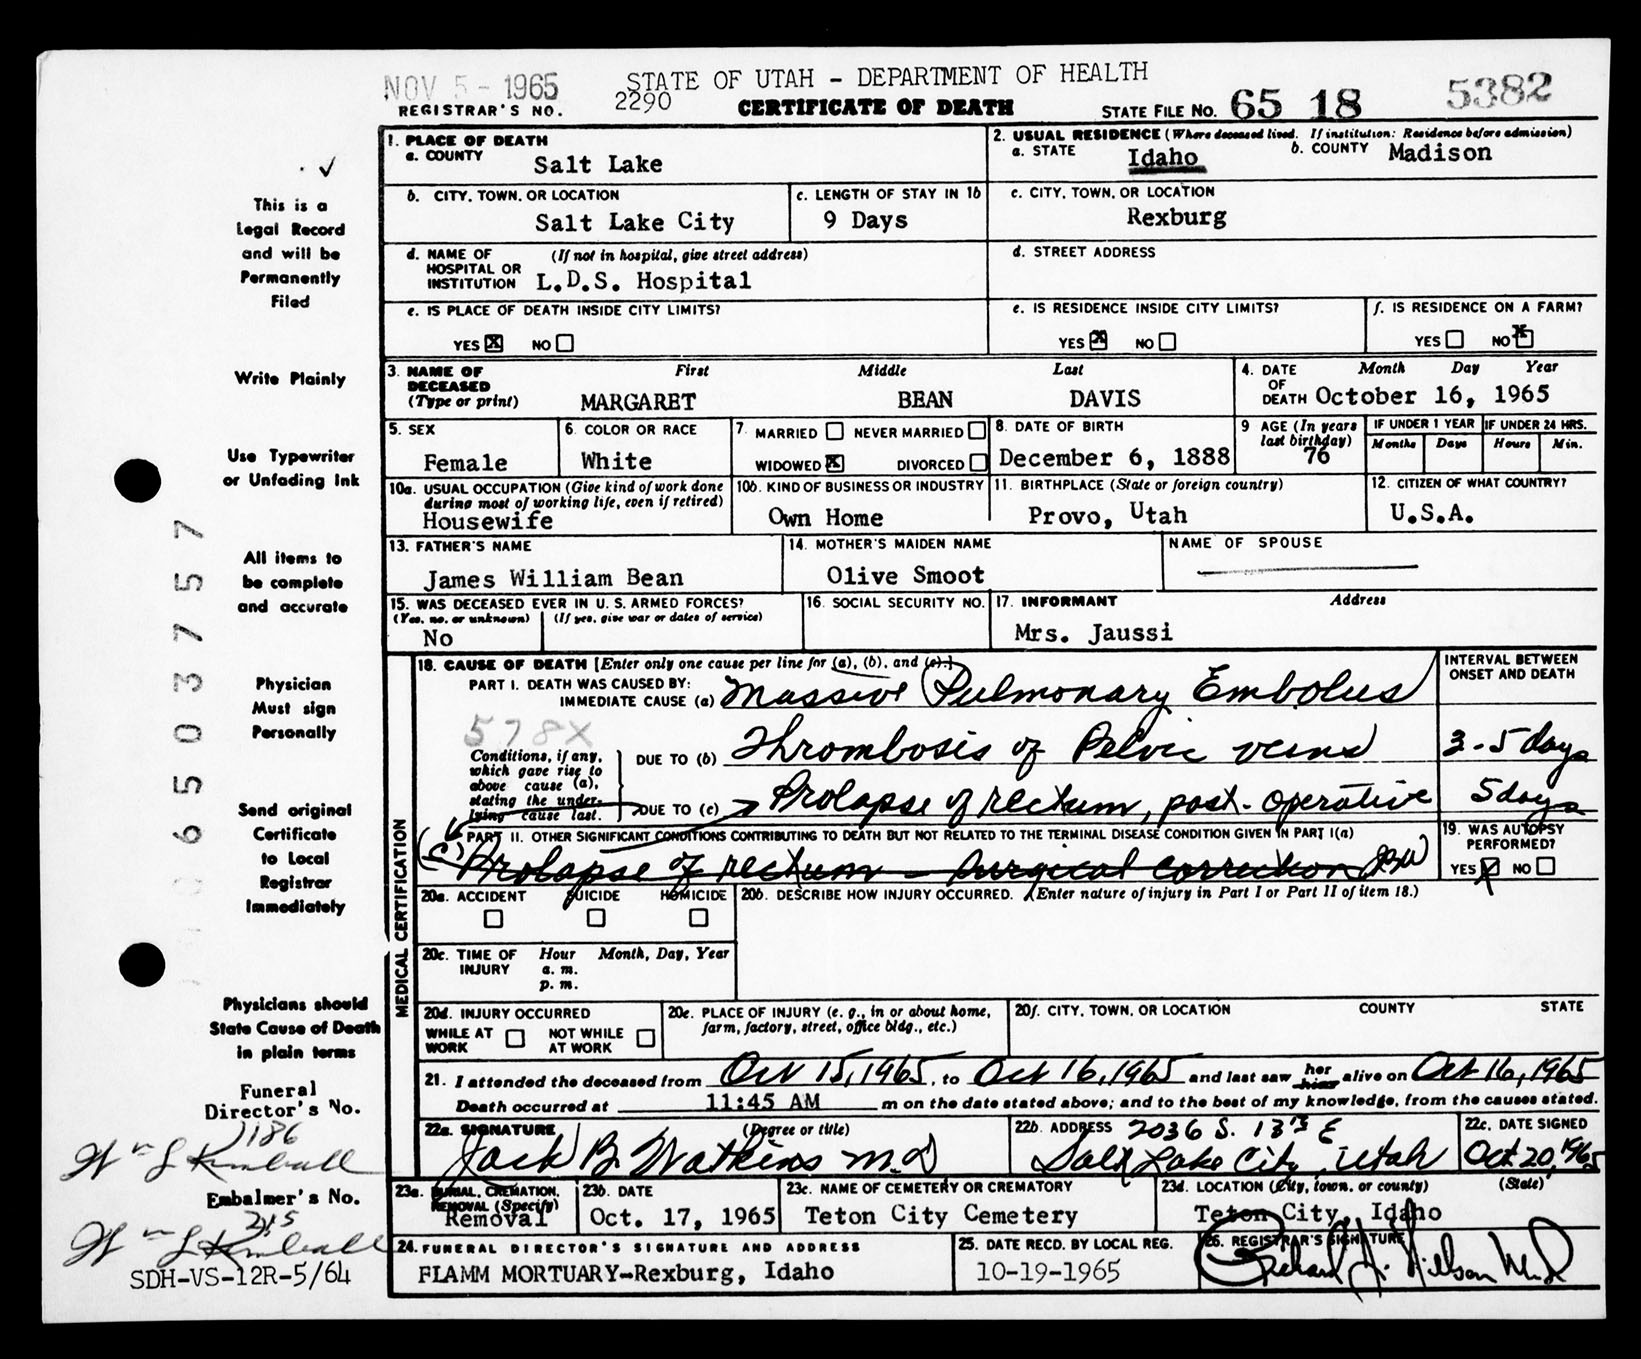 NOV 5 - 1965
STATE OF UTAH - DEPARTMENT OF HEALTH
REGISTRAR'S NO. 2290
CERTIFICATE OF DEATH
STATE FILE NO. 65 18 5382
This is a
Legal Record
and will be
Permanently
Filed
Write Plainly
Use Typewriter
or Unfading Ink
All items to
be complete
and accurate
Physician
Must sign
Personally
Send original
Certificate
to Local
Registrar
Immediately
Physicians should
State Cause of Death
in plain terms
Funeral
Director's No.
1186
Wm L Kimball
Embalmer's No.
215
Wm L Kimball
SDH-VS-12R-5/64
0650373757
1. PLACE OF DEATH
a. COUNTY Salt Lake
2. USUAL RESIDENCE (Where deceased lived. If institution: Residence before admission)
a. STATE Idaho b. COUNTY Madison
b. CITY, TOWN, OR LOCATION
Salt Lake City
c. LENGTH OF STAY IN 1b
9 Days
c. CITY, TOWN, OR LOCATION
Rexburg
d. NAME OF HOSPITAL OR INSTITUTION (If not in hospital, give street address)
L.D.S. Hospital
d. STREET ADDRESS
e. IS PLACE OF DEATH INSIDE CITY LIMITS?
YES X NO
e. IS RESIDENCE INSIDE CITY LIMITS?
YES X NO
f. IS RESIDENCE ON A FARM?
YES NO X
3. NAME OF DECEASED (Type or print) First Middle Last
MARGARET BEAN DAVIS
4. DATE OF DEATH Month Day Year
October 16, 1965
5. SEX
Female
6. COLOR OR RACE
White
7. MARRIED NEVER MARRIED
WIDOWED X DIVORCED
8. DATE OF BIRTH
December 6, 1888
9 AGE (In years last birthday)
76
IF UNDER 1 YEAR IF UNDER 24 HRS.
Months Days Hours Min.
10a. USUAL OCCUPATION (Give kind of work done during most of working life, even if retired)
Housewife
10b. KIND OF BUSINESS OR INDUSTRY
Own Home
11. BIRTHPLACE (State or foreign country)
Provo, Utah
12. CITIZEN OF WHAT COUNTRY?
U.S.A.
13. FATHER'S NAME
James William Bean
14. MOTHER'S MAIDEN NAME
Olive Smoot
NAME OF SPOUSE
15. WAS DECEASED EVER IN U. S. ARMED FORCES?
(Yes, no, or unknown) (If yes, give war or dates of service)
No
16. SOCIAL SECURITY NO.
17. INFORMANT Address
Mrs. Jaussi
MEDICAL CERTIFICATION
18. CAUSE OF DEATH [Enter only one cause per line for (a), (b), and (c).]
INTERVAL BETWEEN ONSET AND DEATH
PART I. DEATH WAS CAUSED BY:
IMMEDIATE CAUSE (a) Massive Pulmonary Embolus
578X
Conditions, if any, which gave rise to above cause (a), stating the underlying cause last.
DUE TO (b) Thrombosis of Pelvic veins 3-5 days
DUE TO (c) Prolapse of rectum, post-operative 5 days
PART II. OTHER SIGNIFICANT CONDITIONS CONTRIBUTING TO DEATH BUT NOT RELATED TO THE TERMINAL DISEASE CONDITION GIVEN IN PART I(a)
(c) Prolapse of rectum - surgical correction JBW
19. WAS AUTOPSY PERFORMED?
YES NO
20a. ACCIDENT SUICIDE HOMICIDE
20b. DESCRIBE HOW INJURY OCCURRED. (Enter nature of injury in Part I or Part II of item 18.)
20c. TIME OF INJURY Hour Month, Day, Year
a. m.
p. m.
20d. INJURY OCCURRED
WHILE AT WORK NOT WHILE AT WORK
20e. PLACE OF INJURY (e. g., in or about home, farm, factory, street, office bldg., etc.)
20f. CITY, TOWN, OR LOCATION COUNTY STATE
21. I attended the deceased from Oct 15, 1965, to Oct 16, 1965 and last saw her him alive on Oct 16, 1965
Death occurred at 11:45 AM m on the date stated above; and to the best of my knowledge, from the causes stated.
22a. SIGNATURE (Degree or title)
Jack B. Watkins M.D
22b. ADDRESS 2036 S. 13th E
Salt Lake City, Utah
22c. DATE SIGNED
Oct 20, 1965
23a. BURIAL, CREMATION, REMOVAL (Specify)
Removal
23b. DATE
Oct. 17, 1965
23c. NAME OF CEMETERY OR CREMATORY
Teton City Cemetery
23d. LOCATION (City, town, or county) (State)
Teton City, Idaho
24. FUNERAL DIRECTOR'S SIGNATURE AND ADDRESS
FLAMM MORTUARY-Rexburg, Idaho
25. DATE RECD. BY LOCAL REG.
10-19-1965
26. REGISTRAR'S SIGNATURE